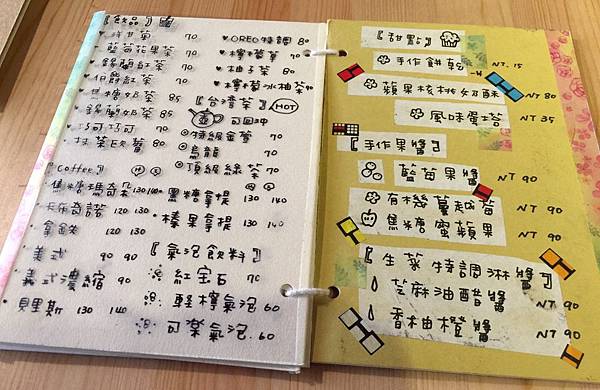 『飲品』
♥洋甘菊 70
•藍莓花果茶 70
•錫蘭紅茶 70
•伯爵紅茶 70
•焦糖奶茶 85
•錫蘭奶茶 85
♥巧可巧可 70
•抹茶欧蕾 80
『Coffee』
焦糖瑪奇朵 130 140
•卡布奇諾 120 130
•拿鐵 120 130
•美式 90 90
•義式濃縮 90
•貝里斯 130 140
♥OREO特調 80
♥檸檬草 70
♥柚子茶 80
♥檸檬冰柚茶 90
『台湾茶』 HOT
可回沖
◎特級金萱 70
◎烏龍 70
◎頂級綠茶 70
•黑糖拿提 130 140
•榛果拿提 130 140
『氣泡飲料』
紅宝石 70
輕檸氣泡 60
可楽氣泡 60
『甜點』
手作餅乾 NT. 15
蘋果核桃奶酥 NT 80
風味蛋塔 NT 35
『手作果醬』
藍莓果醬 NT 90
有機蔓越莓 NT 90
焦糖蜜蘋果 NT 90
『生菜特調淋醬』
芝麻油醋醬 NT 90
香柚橙醬 NT 90